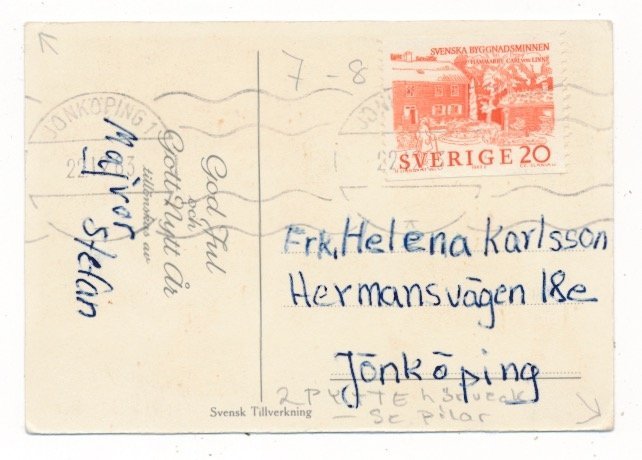 7-8
SVENSKA BYGGNADSMINNEN
HAMMARBY CARL VON LINNÉ
SVERIGE 20
JÖNKÖPING 1
God Jul
och
Gott Nytt År
tillönskas av
Majvor
Stefan
Frk, Helena Karlsson
Hermansvägen 18e
Jönköping
2 PYTTE hörnveck
- Se pilar
Svensk Tillverkning